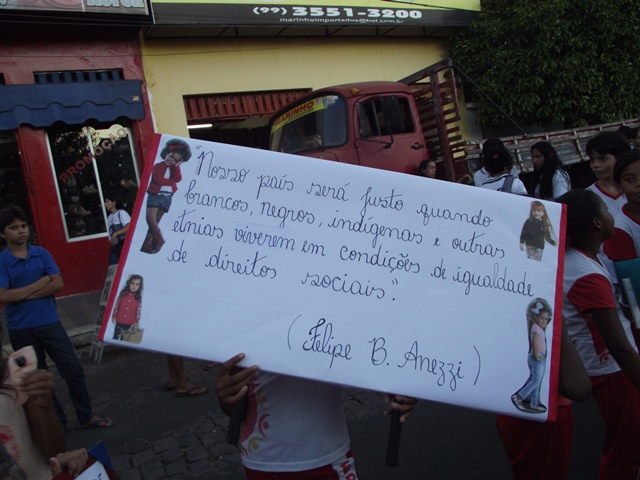 (99) 3551-3200
marinhoimportados@hotmail.com
MARINHO
PROMOÇÃO
"Nosso país será justo quando
brancos, negros, indígenas e outras
etnias viverem em condições de igualdade
de direitos sociais".
(Felipe B. Anezzi)